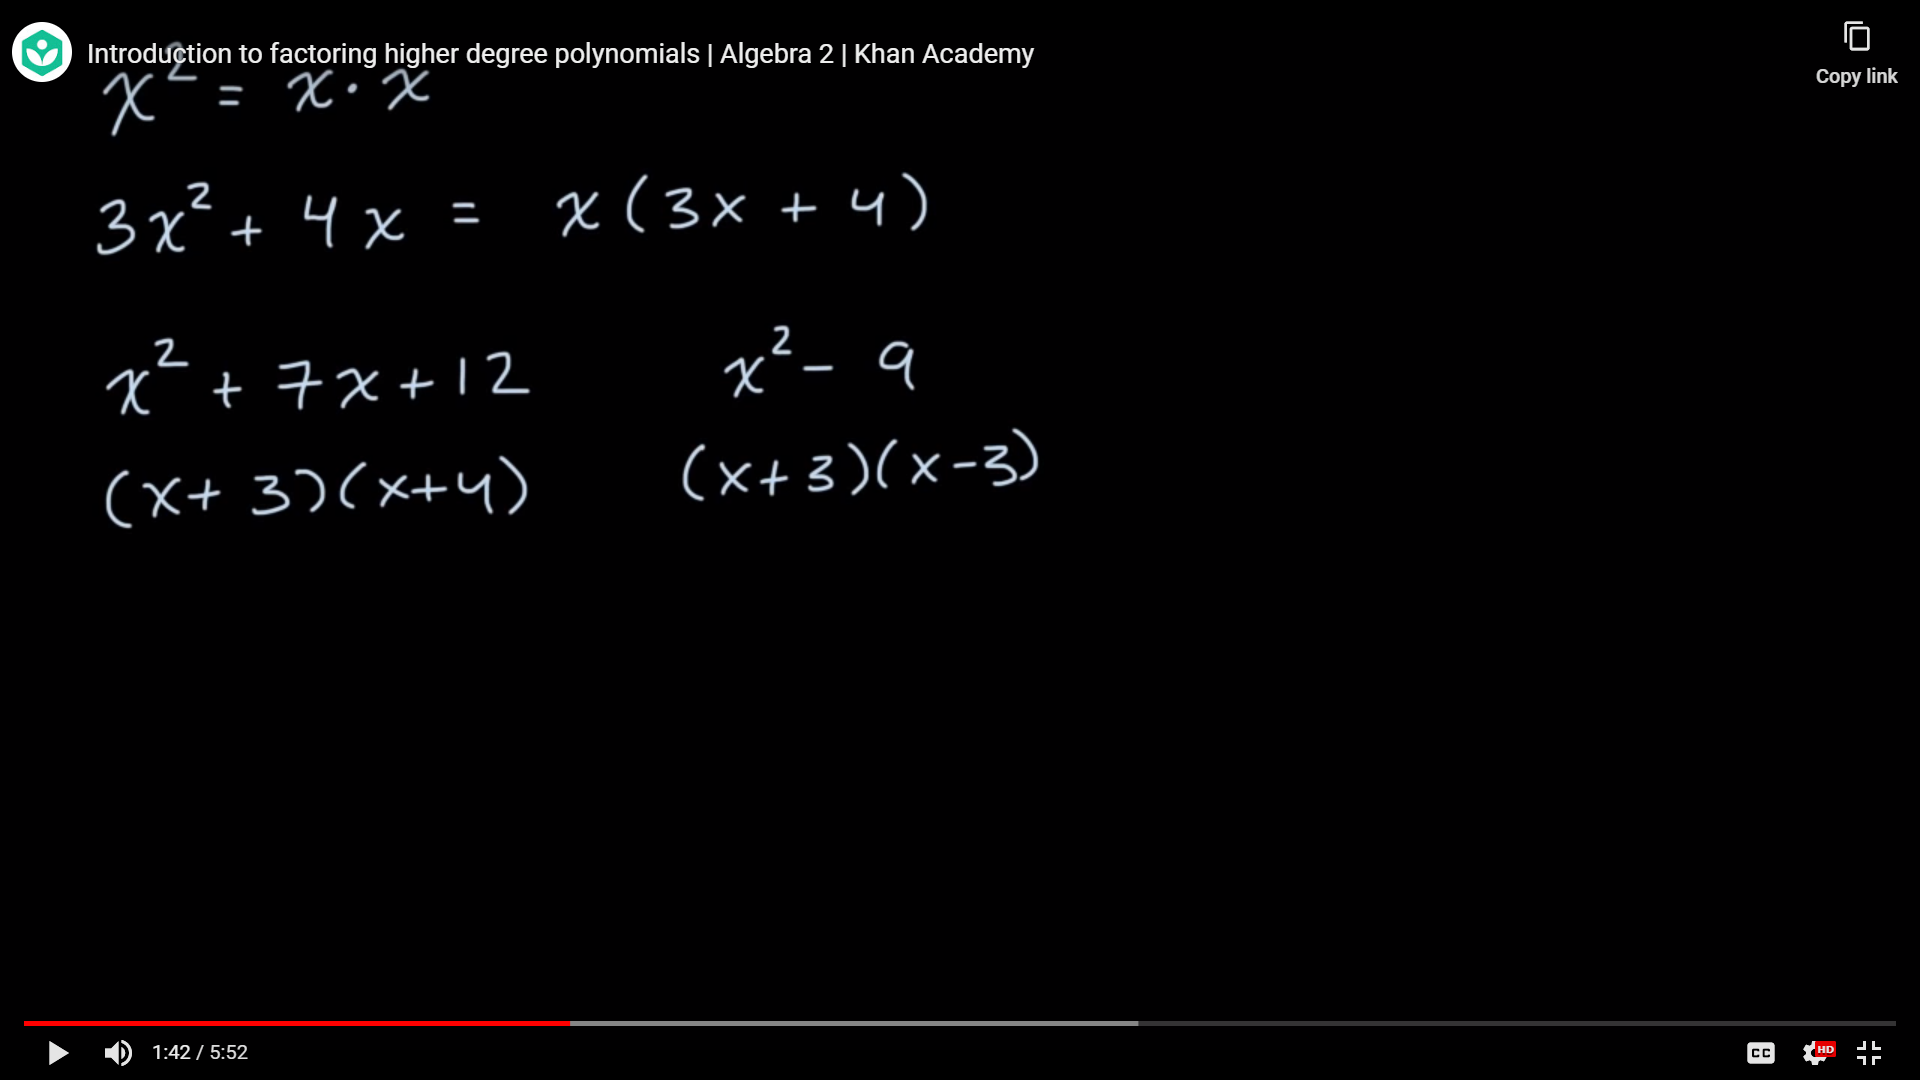 Introduction to factoring higher degree polynomials | Algebra 2 | Khan Academy
Copy link
x² = x · x
3x² + 4x = x(3x + 4)
x² + 7x + 12
x² - 9
(x + 3)(x + 4)
(x + 3)(x - 3)
1:42 / 5:52
CC
HD